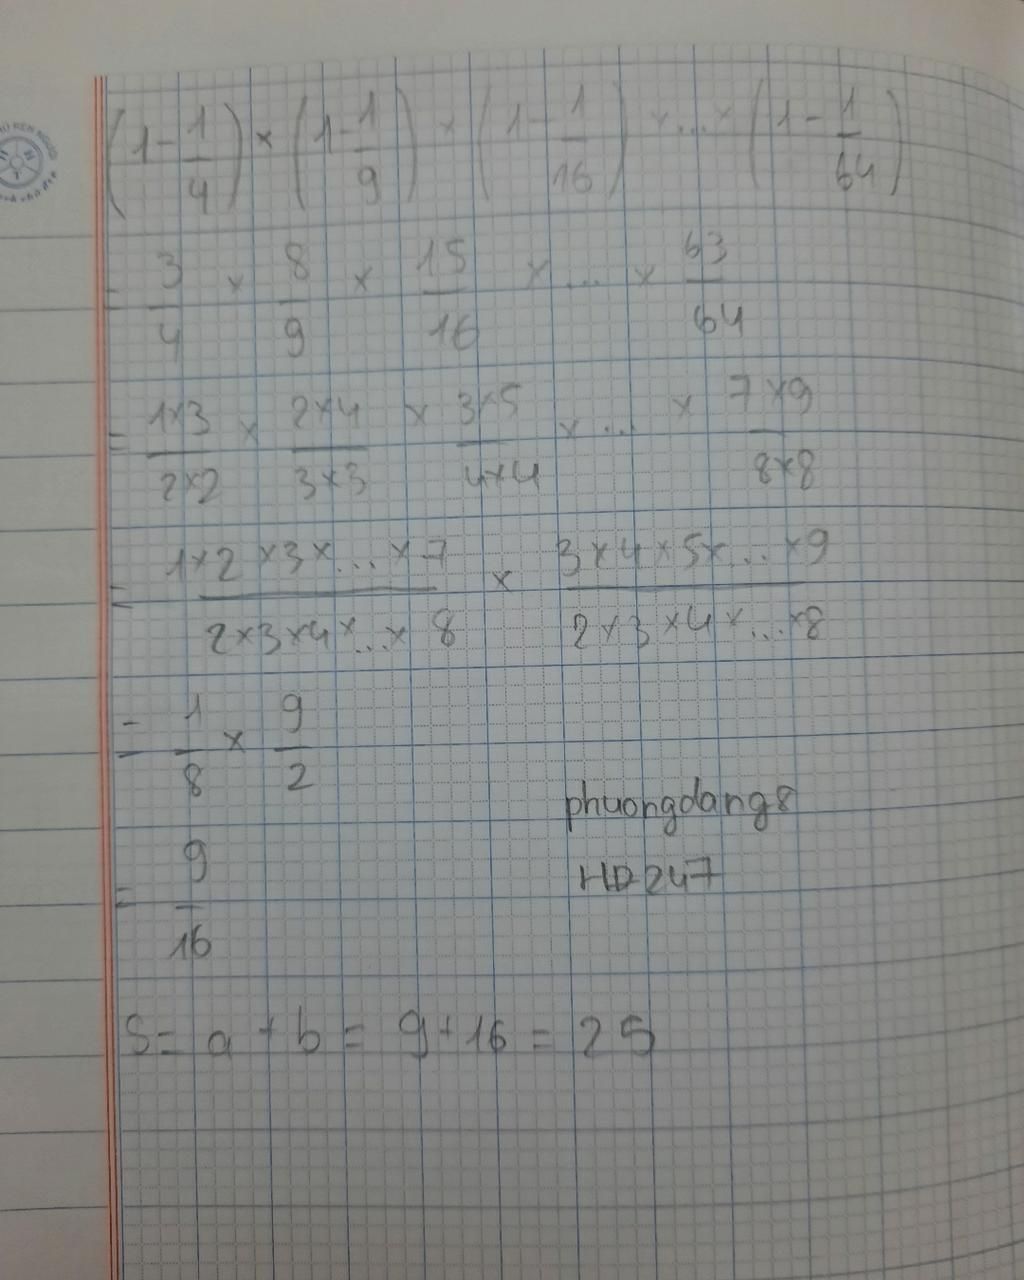 (1 - 1/4) × (1 - 1/9) × (1 - 1/16) × ... × (1 - 1/64)
= 3/4 × 8/9 × 15/16 × ... × 63/64
= 1×3/2×2 × 2×4/3×3 × 3×5/4×4 × ... × 7×9/8×8
= 1×2×3×...×7/2×3×4×...×8 × 3×4×5×...×9/2×3×4×...×8
= 1/8 × 9/2
phuongdang8
= 9/16
HD247
S = a + b = 9 + 16 = 25